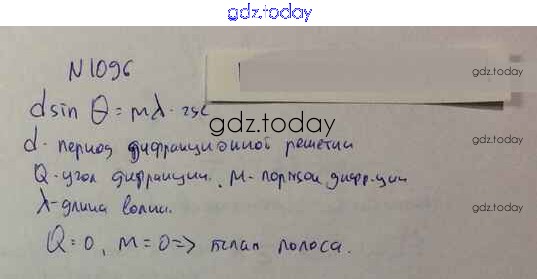 gdz.today
N1096
gdz.today
d sin θ = mλ. где
gdz.today
d - период дифракционной решетки
Q - угол дифракции. m - порядок дифр-ции
gdz.today
λ - длина волны.
gdz.today
Q = 0, m = 0 => полоса.
gdz.today